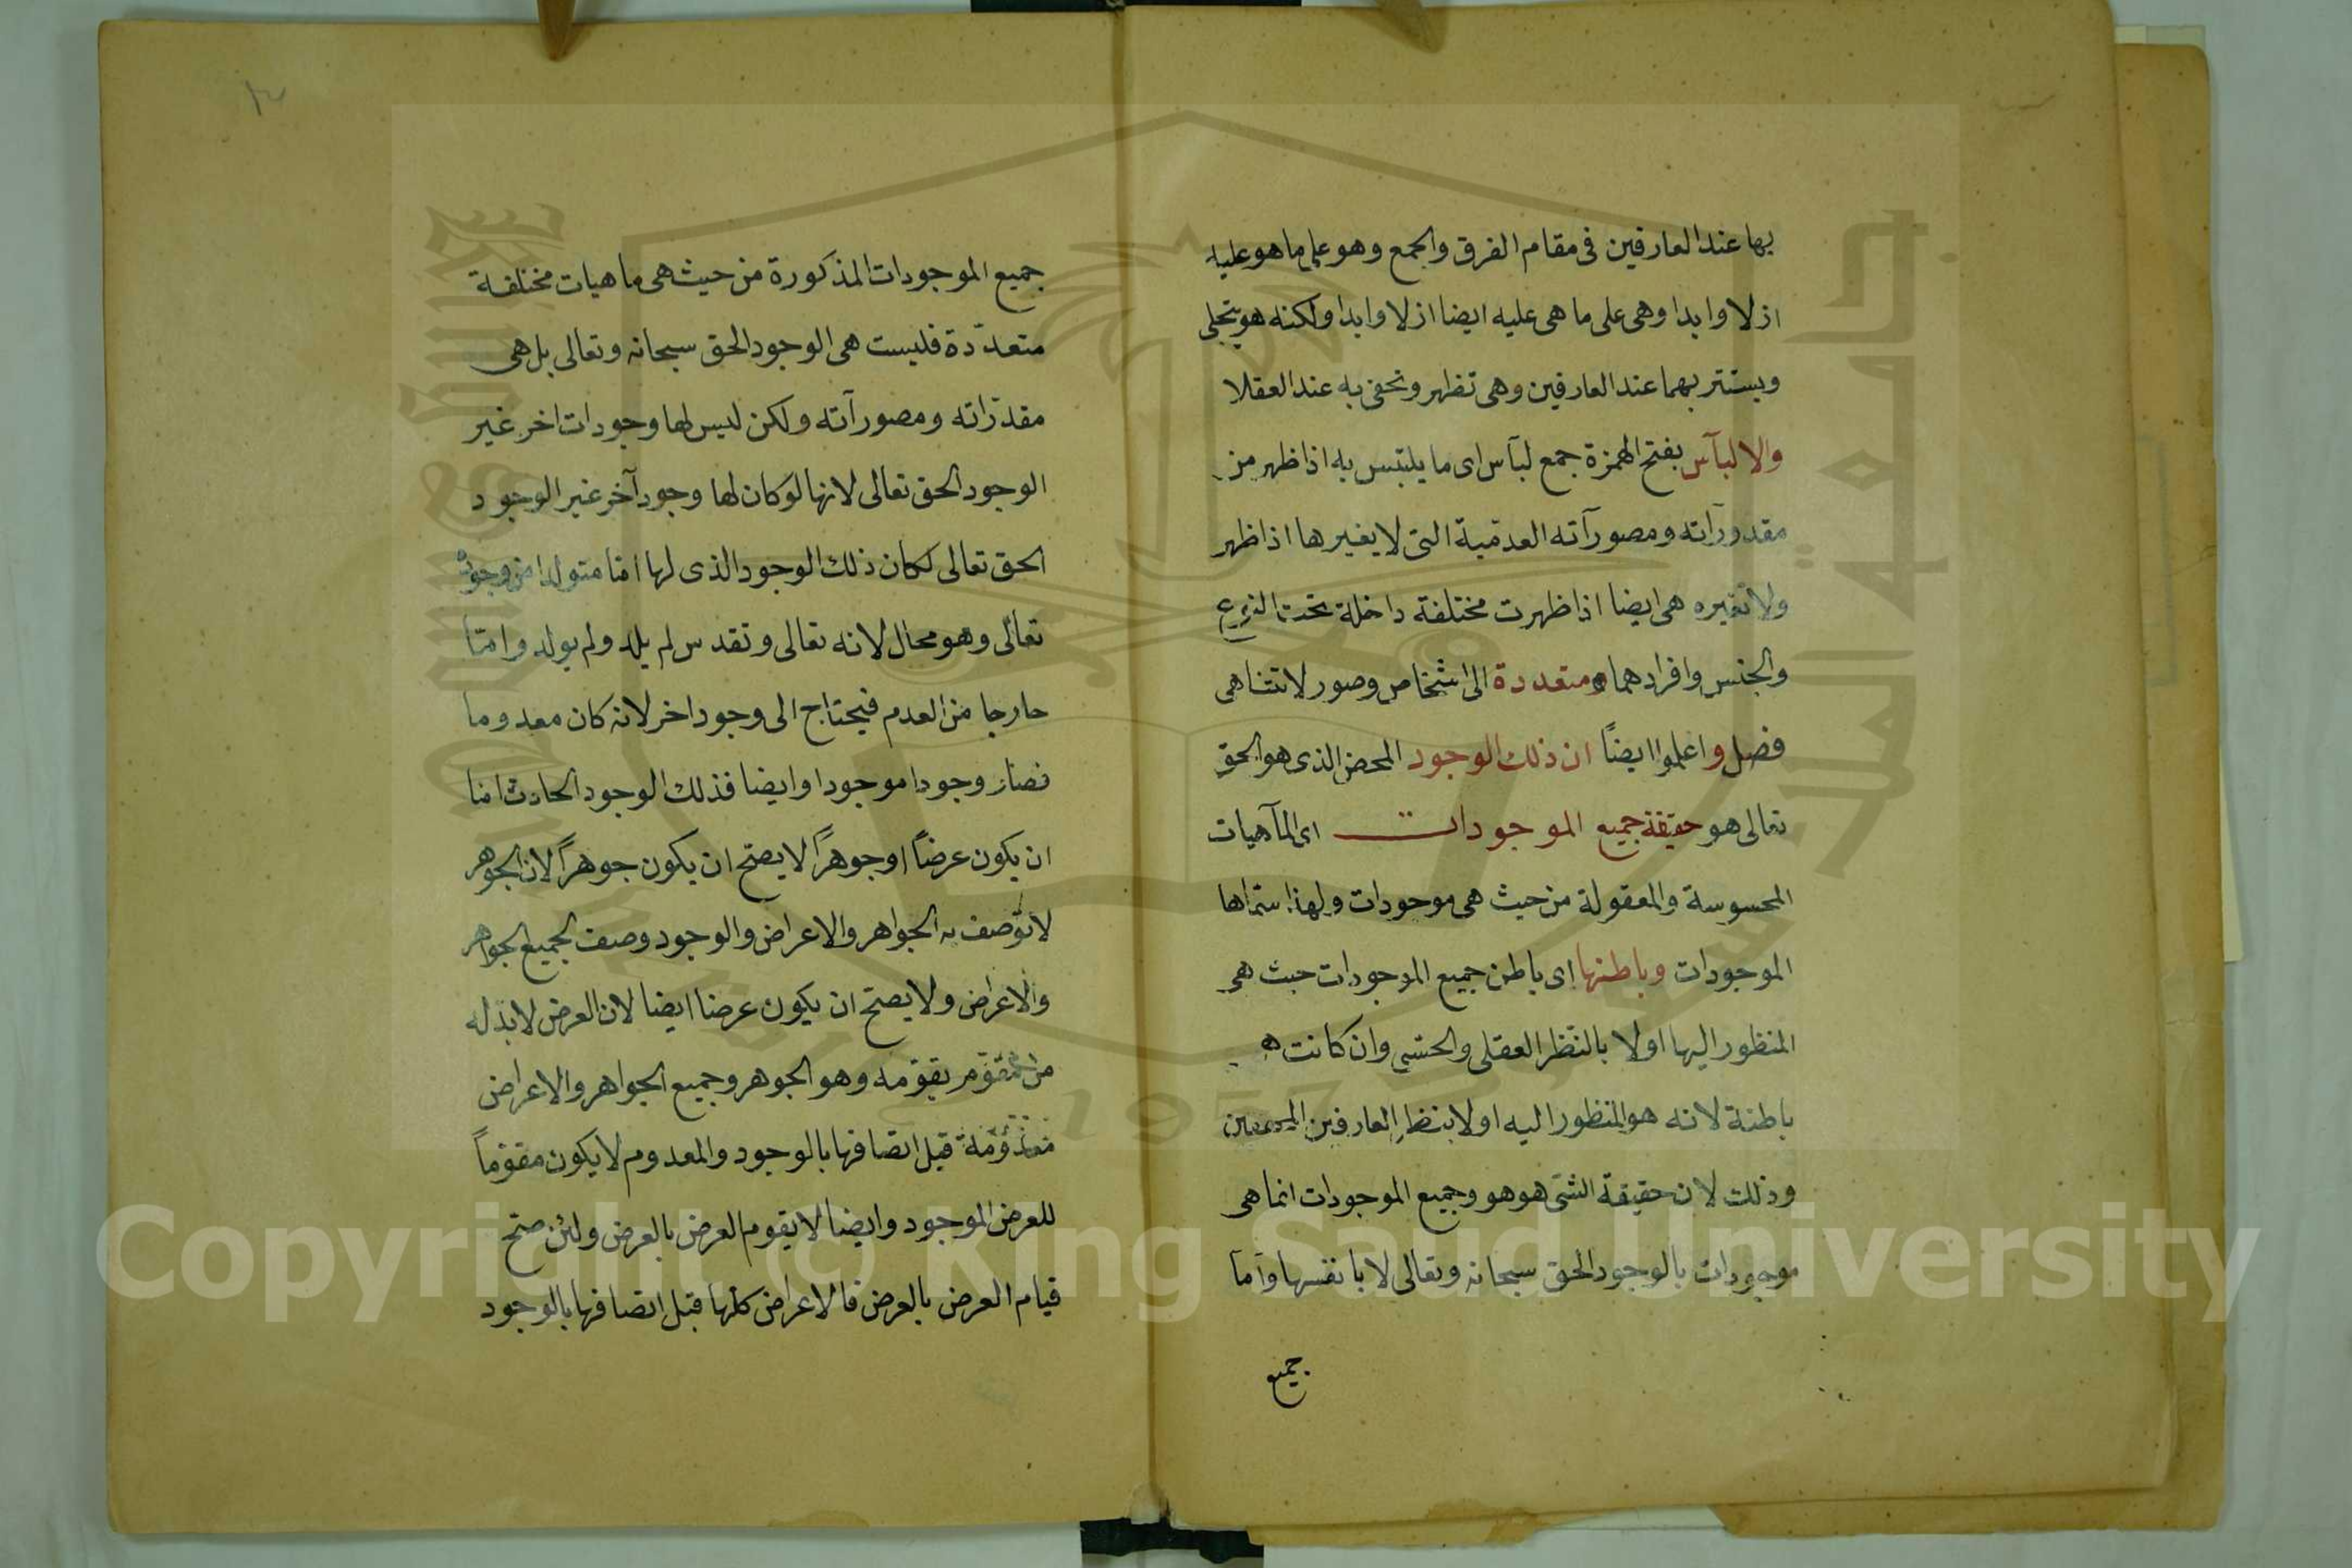 بها عند العارفين فى مقام الفرق والجمع وهو على ما هو عليه
ازلا وابدا وهى على ما هى عليه ايضا ازلا وابدا ولكنه هو يتجلى
ويستتر بهما عند العارفين وهى تظهر وتخفى به عند العقلا
والالبآس بفتح الهمزة جمع لبآس اى ما يلتبس به اذا ظهر من
مقدورآته ومصورآته العدمّية التى لا يغيرها اذا ظهر
ولا تغيره هى ايضا اذا ظهرت مختلفة داخلة تحت النوع
والجنس وافرادهما ومتعددة الى اشخاص وصور لا تتناهى
فصل واعلموا ايضاً ان ذلك الوجود المحض الذى هو الحق
تعالى هو حقيقة جميع الموجودات اى المآهيات
المحسوسة والمعقولة من حيث هى موجودات ولهذا سمّاها
الموجودات وباطنها اى باطن جميع الموجودات حيث هى
المنظور اليها اولا بالنّظر العقلى والحسّى وان كانت ه
باطنة لانه هو المنظور اليه اولا بنظر العارفين
وذلك لان حقيقة الشئ هو هو وجميع الموجودات انما هى
موجودات بالوجود الحق سبحانه وتعالى لا بانفسها وآما
جميع
جميع الموجودات المذكورة من حيث هى ماهيات مختلفة
متعدّدة فليست هى الوجود الحق سبحانه وتعالى بل هى
مقدّراته ومصورآته ولكن ليس لها وجودات اخر غير
الوجود الحق تعالى لانها لو كان لها وجود آخر غير الوجود
الحق تعالى لكان ذلك الوجود الذى لها امّا متولدا من وجوده
تعالى وهو محال لانه تعالى وتقدس لم يلد ولم يولد وامّا
خارجا من العدم فيحتاج الى وجود اخر لانه كان معدوما
فصار وجودا موجودا وايضا فذلك الوجود الحادث امّا
ان يكون عرضاً او جوهراً لا يصحّ ان يكون جوهراً لان الجوهر
لا توصف به الجواهر والاعراض والوجود وصف لجميع الجواهر
والاعراض ولا يصحّ ان يكون عرضا ايضا لان العرض لا بدّ له
من مقوّم يقوّمه وهو الجوهر وجميع الجواهر والاعراض
معدومة قبل اتصافها بالوجود والمعدوم لا يكون مقوّماً
للعرض الموجود وايضا لا يقوم العرض بالعرض ولئن صحّ
قيام العرض بالعرض فالاعراض كلها قبل اتصافها بالوجود
Copyright © King Saud University
جامعة الملك سعود
1957